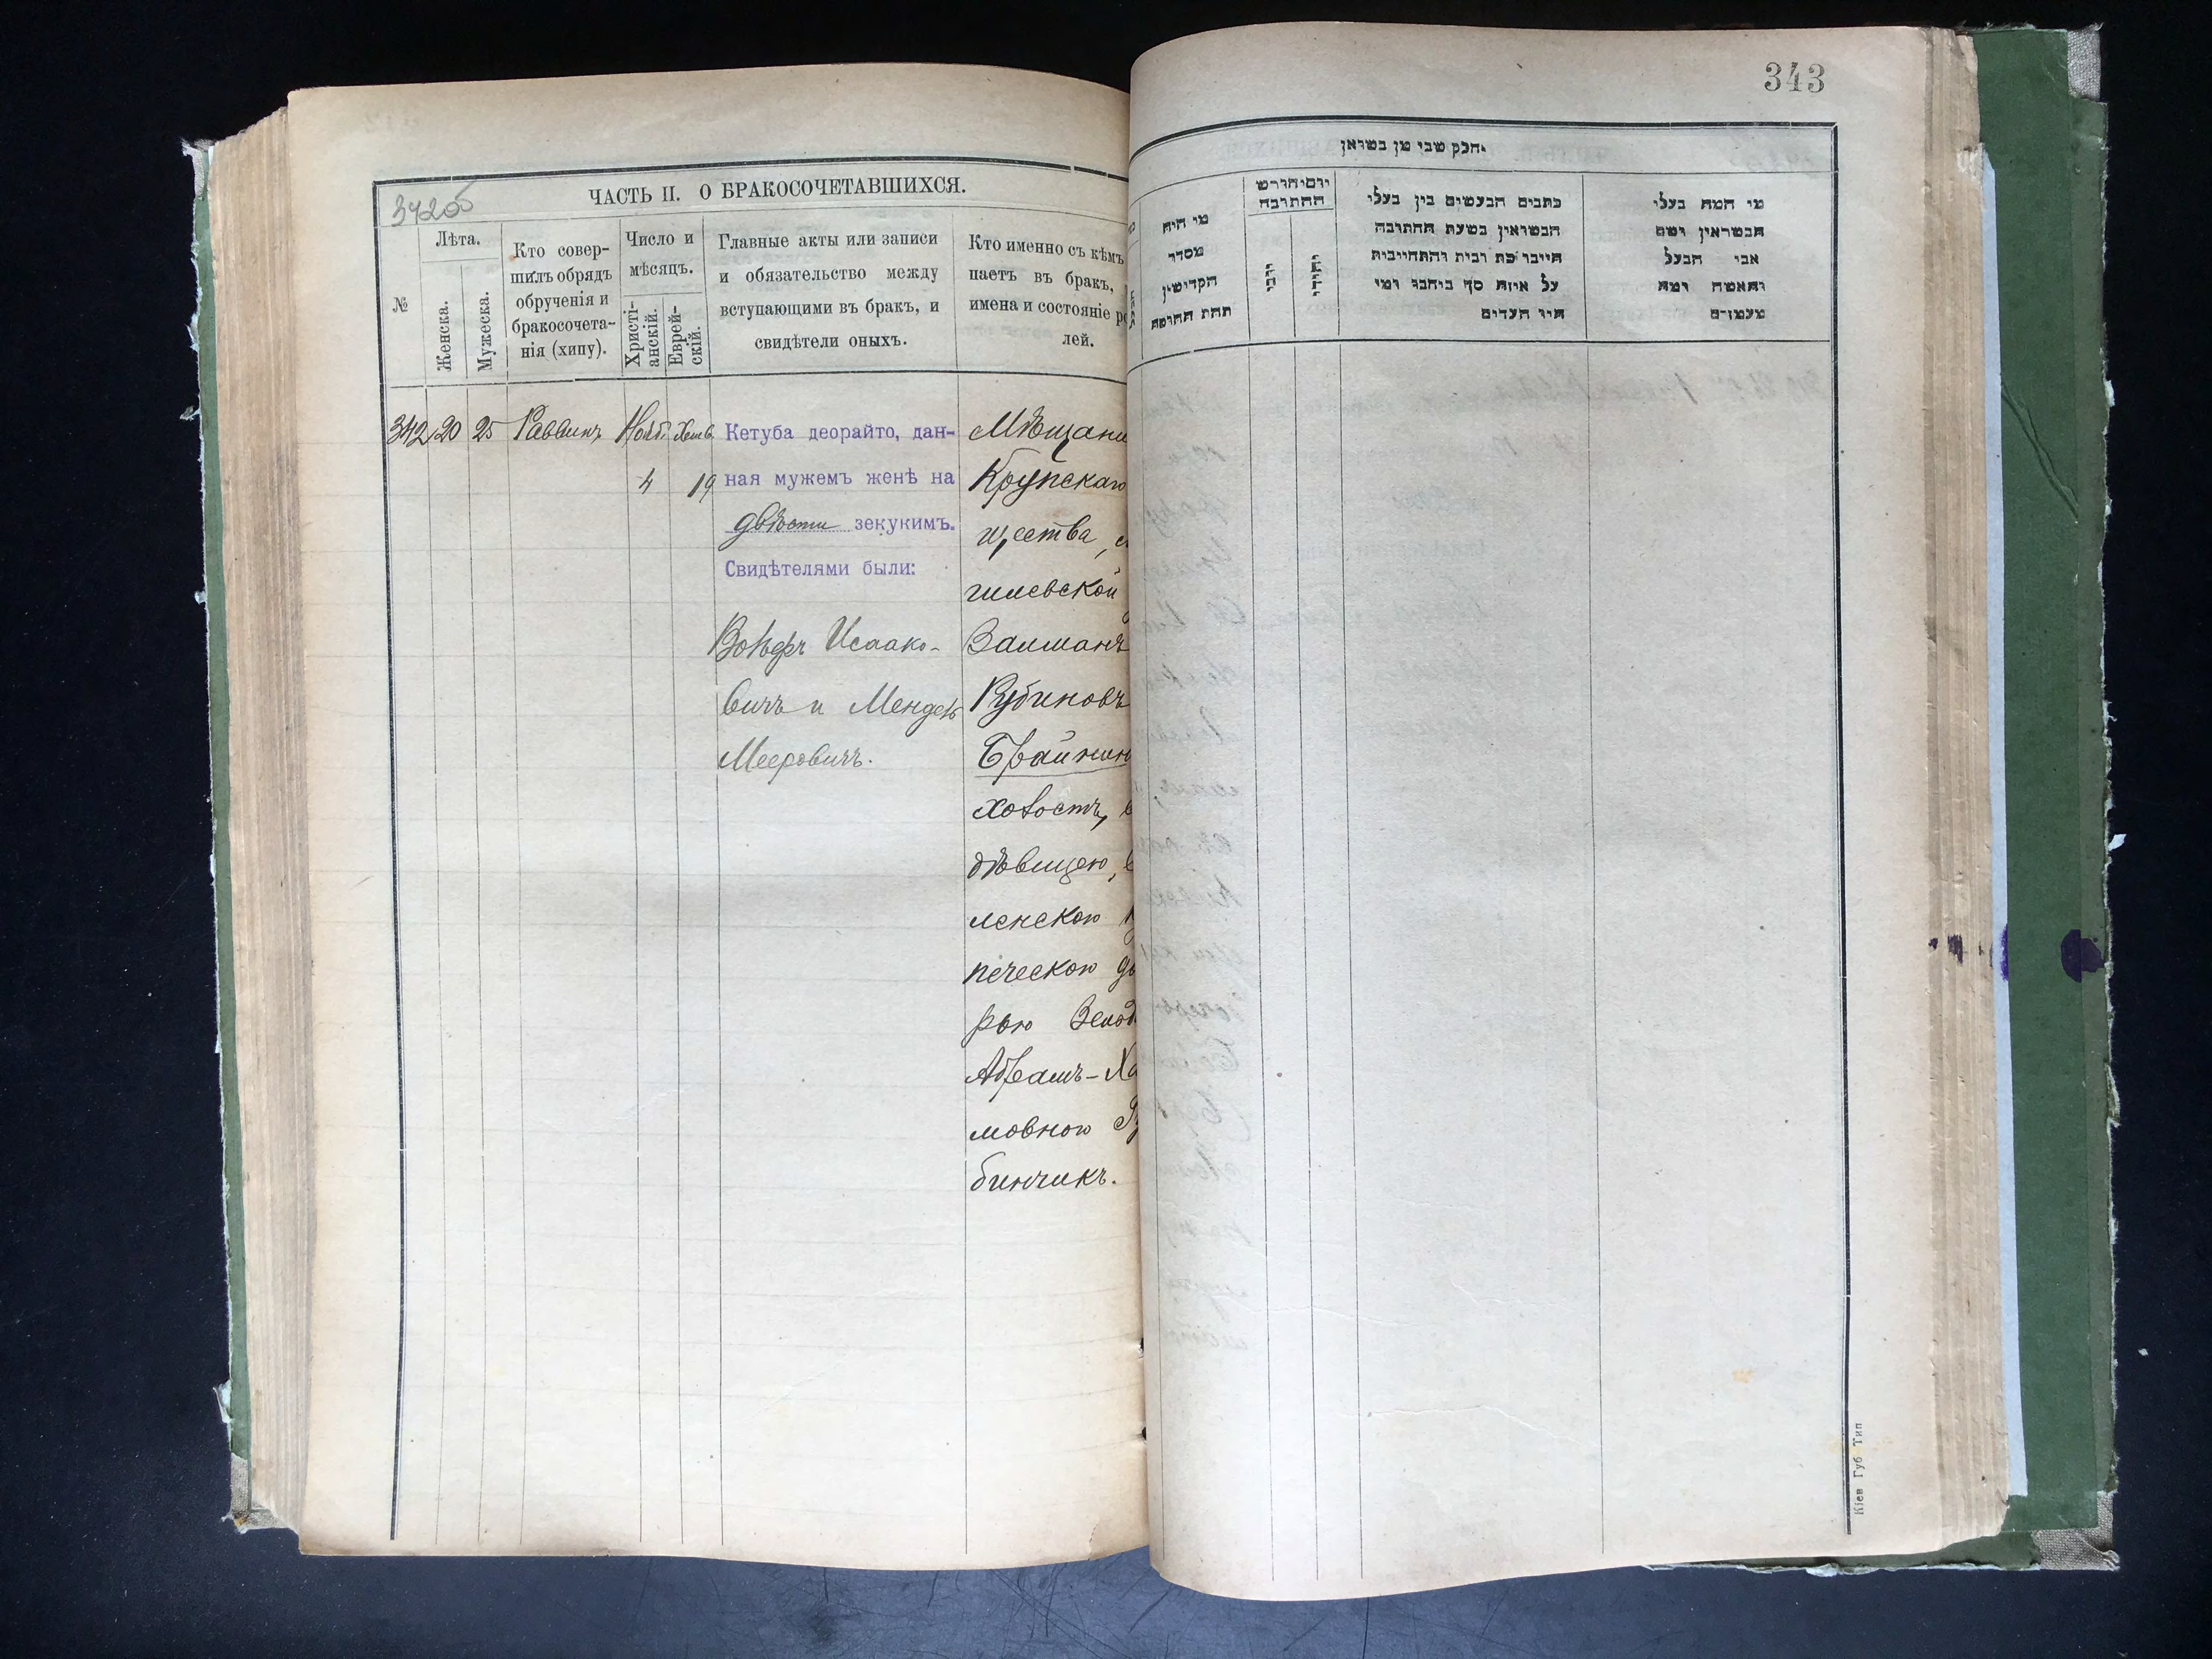 342 об
ЧАСТЬ II. О БРАКОСОЧЕТАВШИХСЯ.
№
Лѣта.
Женска.
Мужеска.
Кто совер-
шилъ обрядъ
обрученія и
бракосочета-
нія (хипу).
Число и
мѣсяцъ.
Христі-
анскій.
Еврей-
скій.
Главные акты или записи
и обязательство между
вступающими въ бракъ, и
свидѣтели оныхъ.
Кто именно съ кѣмъ
паетъ въ бракъ,
имена и состояніе ро
лей.
342 20 25 Раввинъ Нояб. Хешв.
4 19
Кетуба деорайто, дан-
ная мужемъ женѣ на
двѣсти зекукимъ.
Свидѣтелями были:
Вольфъ Исаако-
вичъ и Мендель
Мееровичъ.
Мѣщани
Крупскаго
щества,
гилевской
Залманъ
Рубиновъ
Брайнин
холостъ, с
дѣвицею,
ленскою
печескою до
рью
Абрамъ-Ха
мовною Ру
бинчикъ.
343
חלק שני מן בשואין
מי היה
מסדר
הקדושין
תחת החופה
יום וחודש
החתובה
כתבים הנעשים בין בעלי
הנשואין בשעת החתובה
חייבו כת ובית והתחייבות
על איזה סך ביחבו ומי
היו העדים
מי המה בעלי
הנשואין ושם
אבי הבעל
והאשה ומה
מעמדם
Кіев Губ Тип